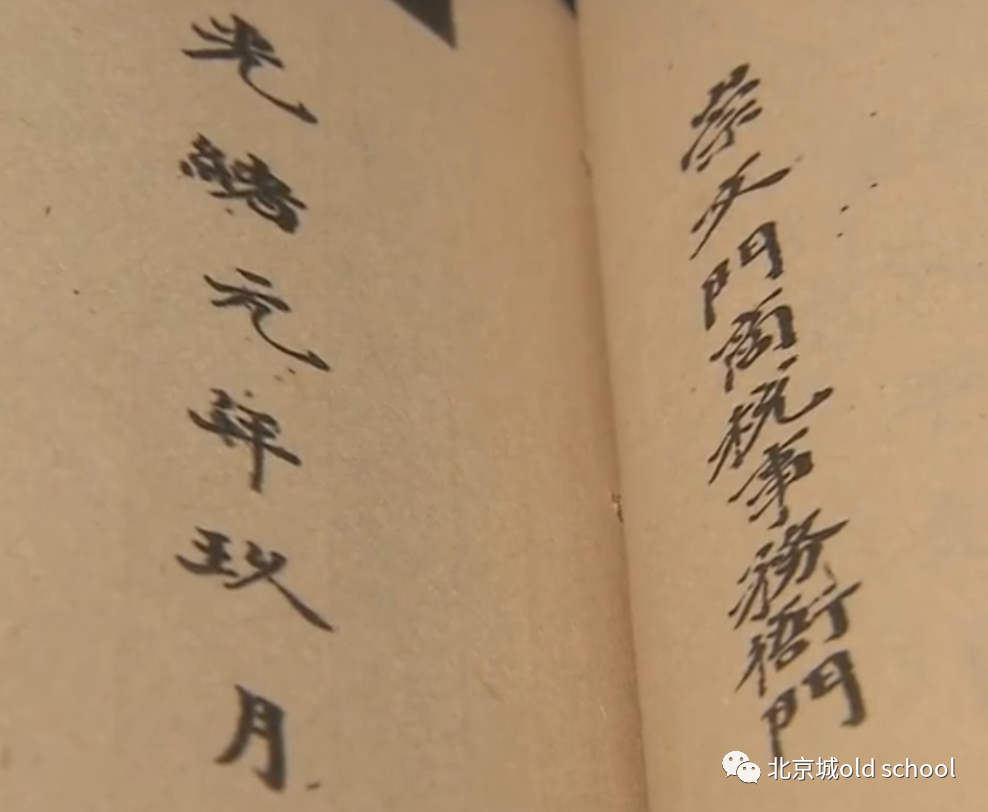 崇文門商稅事務衙門
光緒元年玖月
北京城old school